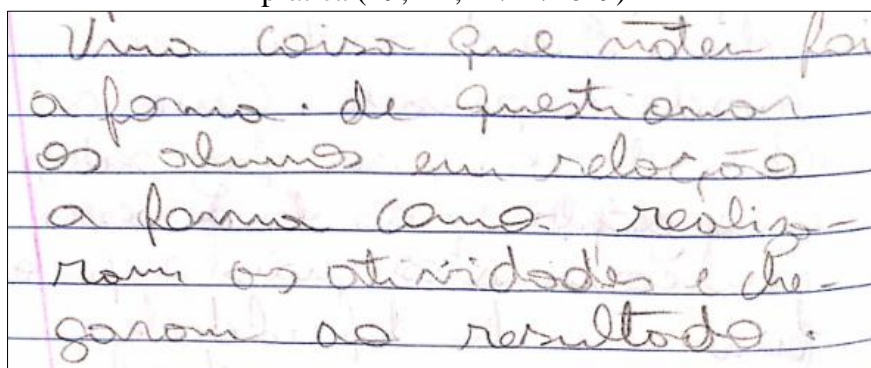 Uma coisa que notei foi
a forma de questionar
os alunos em relação
a forma como realiza-
ram as atividades e che-
garam ao resultado.